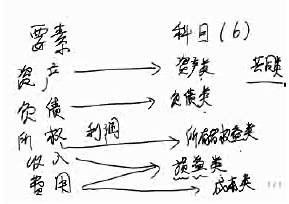 要素 科目(6)
资产 资产类 共同类
负债 负债类
所权 利润 所有者权益类
收入 损益类
费用 成本类